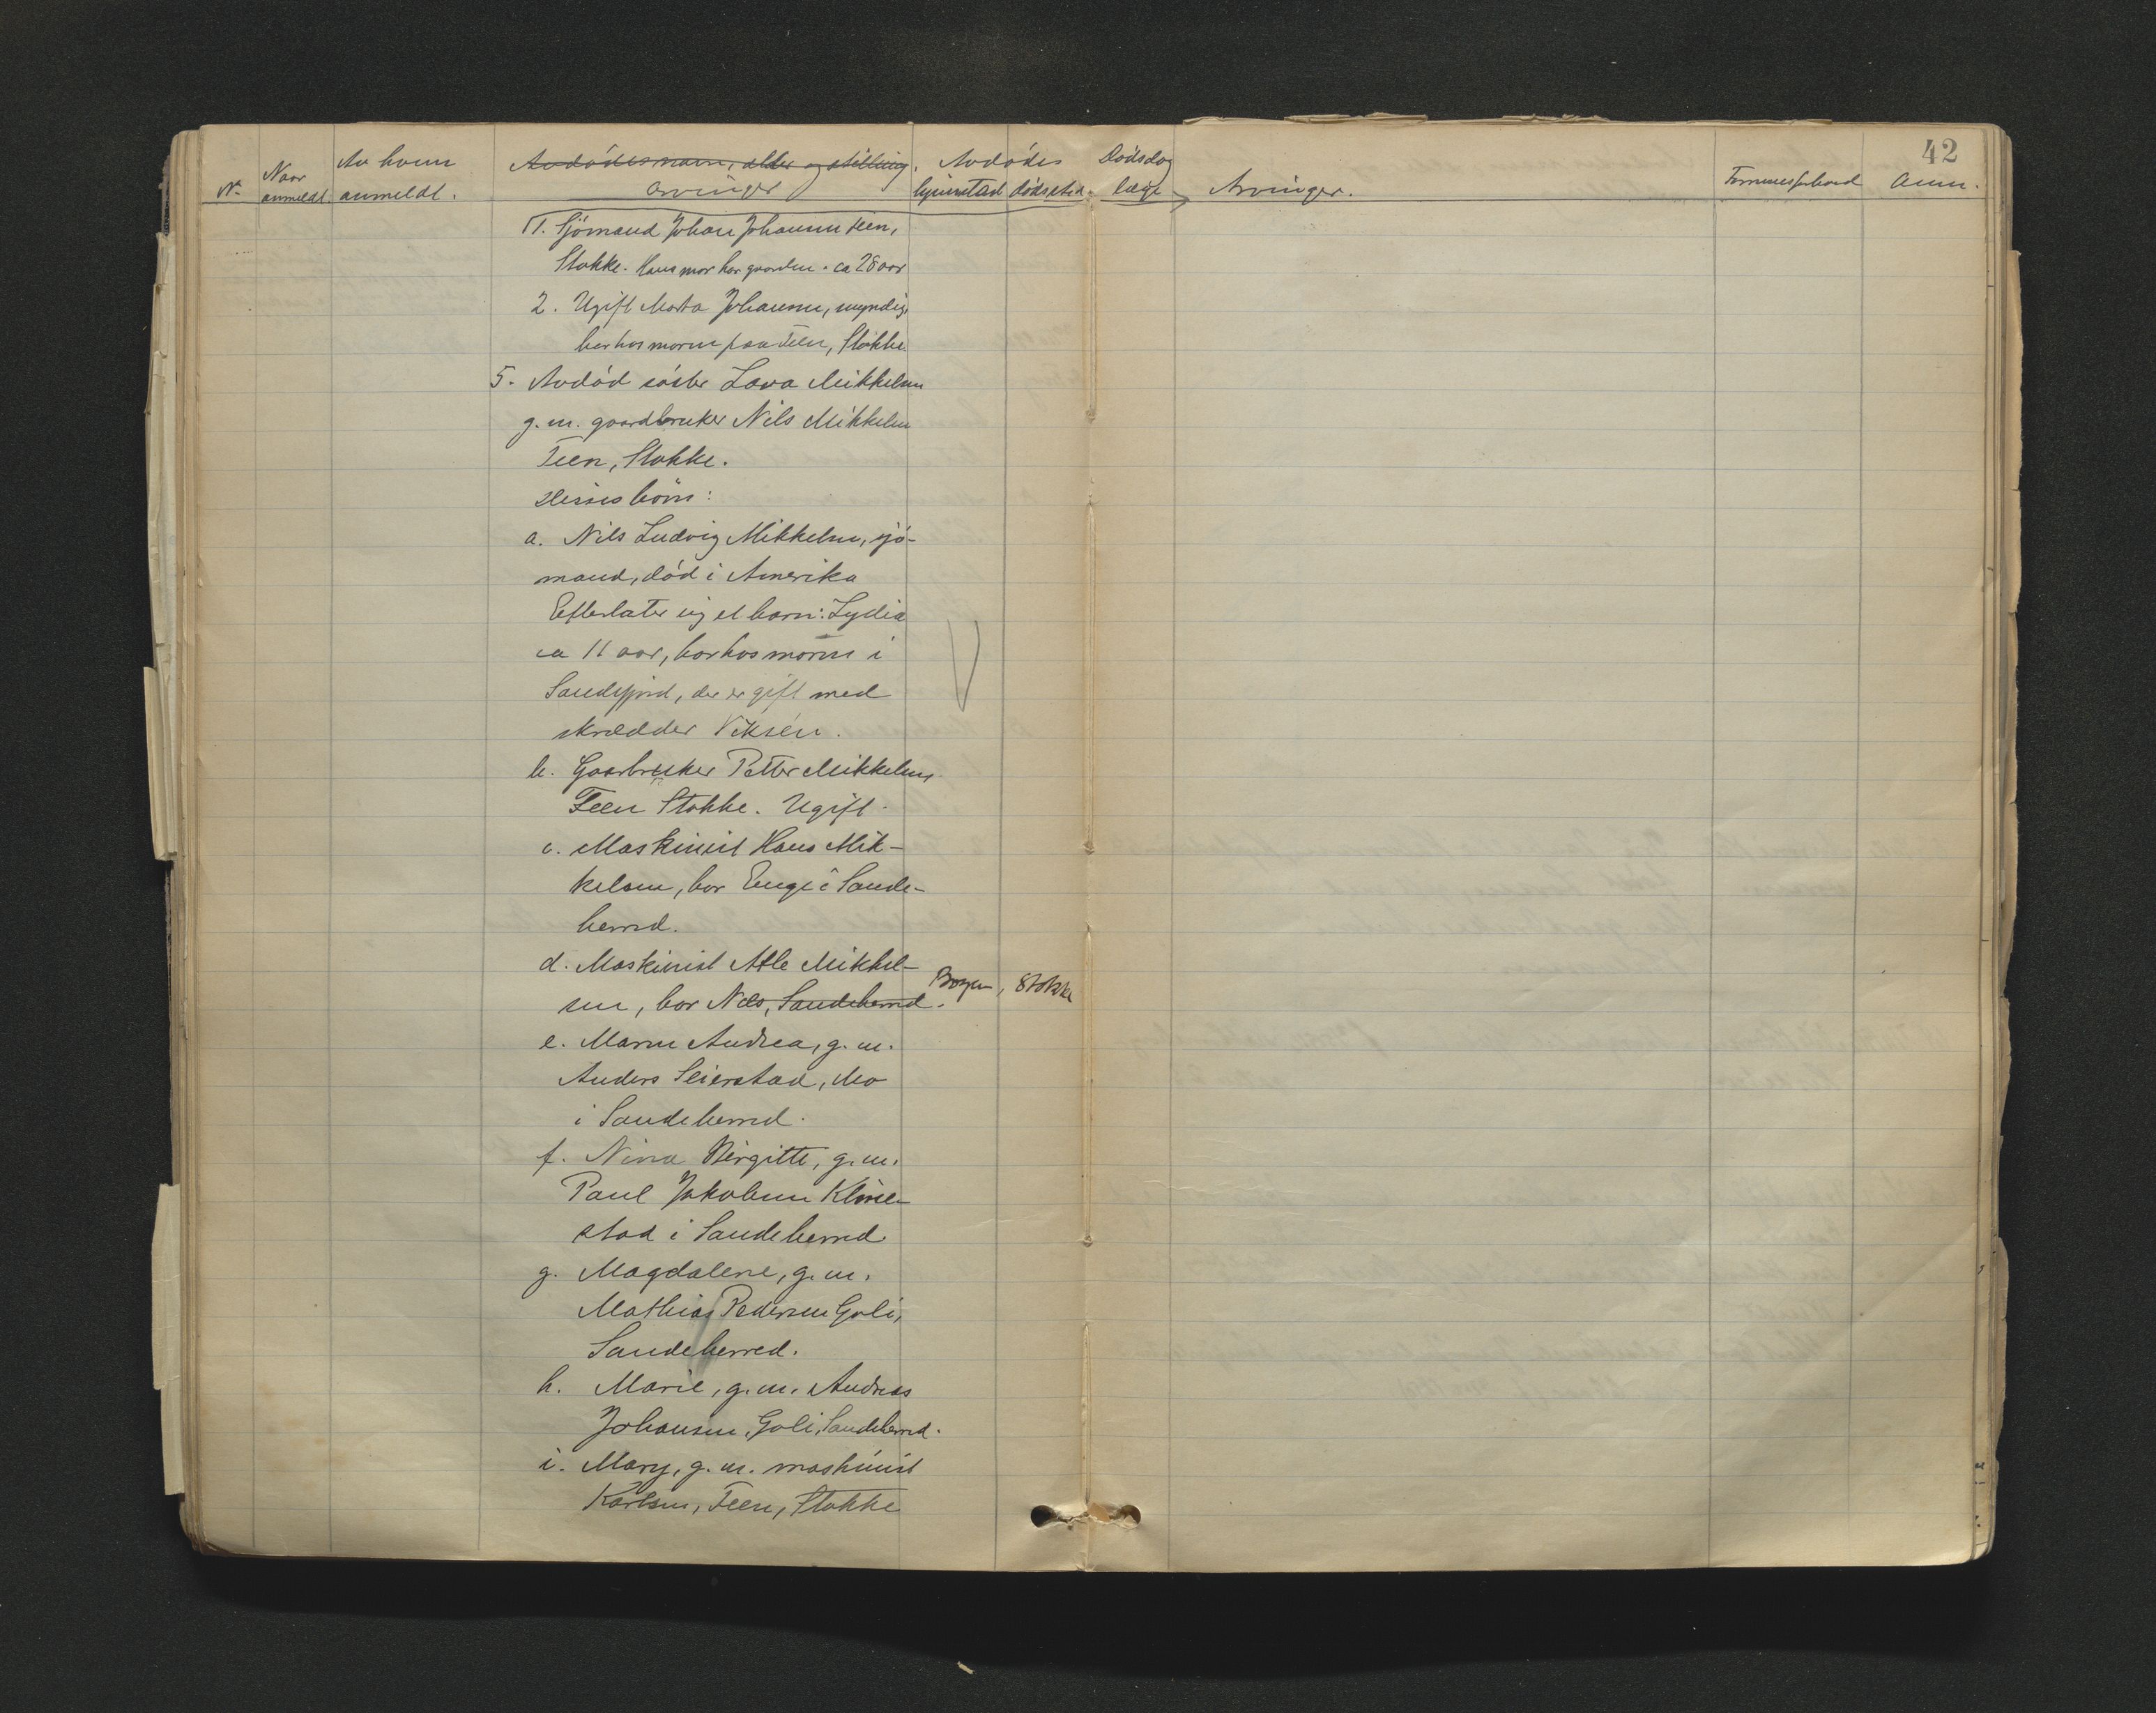 42
No Naar anmeldt. Av hvem anmeldt. Avdødes navn, alder og stilling. Arvinger Avdødes hjemstad dødssted. Dødsdag Arvinger. Anm.
1. Sjömand Johan Johannsen Feen,
Stokke. Hans mor har gaarden. ca 28 aar
2. Ugift Marta Johannsen, myndig,
bor hos moren paa Feen, Stokke.
5. Avdöd söster Lava Mikkelsen
g. m. gaardbruker Nils Mikkelsen
Feen, Stokke.
Disses börn:
a. Nils Ludvig Mikkelsen, sjö-
mand, död i Amerika
Efterlater sig et barn: Lydia
ca 11 aar, bor hos moren i
Sandefjord, der er gift med
skrædder Viksén.
b. Gaarbruker Petter Mikkelsen,
Feen Stokke. Ugift.
c. Maskinist Hans Mik-
kelsen, bor Enge i Sande-
herred.
d. Maskinist Atle Mikkel-
sen, bor Nes, Sandeherred. Bogen, Stokke
e. Maren Andrea, g. m.
Anders Seierstad, Mo
i Sandeherred.
f. Nina Birgitte, g. m.
Paul Jakobsen Klave-
stad i Sandeherred
g. Magdalene, g. m.
Mathias Pedersen Goli,
Sandeherred.
h. Marie, g. m. Andreas
Johansen, Goli, Sandeherred.
i. Mary, g. m. maskinist
Karlsen, Feen, Stokke